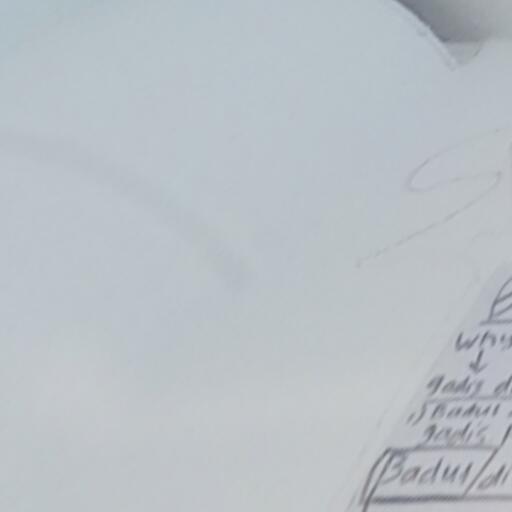 Why
↓
gadis d
Badui
gadis
Badui/di